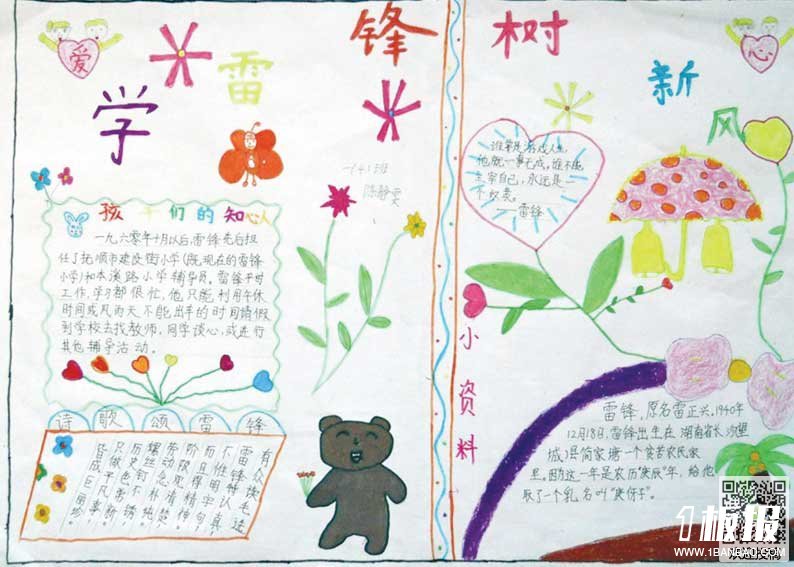 学雷锋树新风
爱
心
一（4）班
陈静雯
孩子们的知心人
一九六零年十月以后，雷锋先后担
任了抚顺市建设街小学（既现在的雷锋
小学）和本溪路小学辅导员。雷锋平时
工作，学习都很忙，他只能利用午休
时间或风雨天不能出车的时间请假
到学校去找教师，同学谈心，或进行
其他辅导活动。
诗歌颂雷锋
谁若是游戏人生
他就一事无成。谁不能
主宰自己，永远是一
个奴隶。
——雷锋
小资料
雷锋，原名雷正兴，1940年
12月18日，雷锋出生在湖南省长沙望
城县简家塘一个贫苦农民家
里。因为这一年是农历“庚辰”年，给他
取了个乳名叫“庚伢子”。
1板报
WWW.1BANBAO.COM